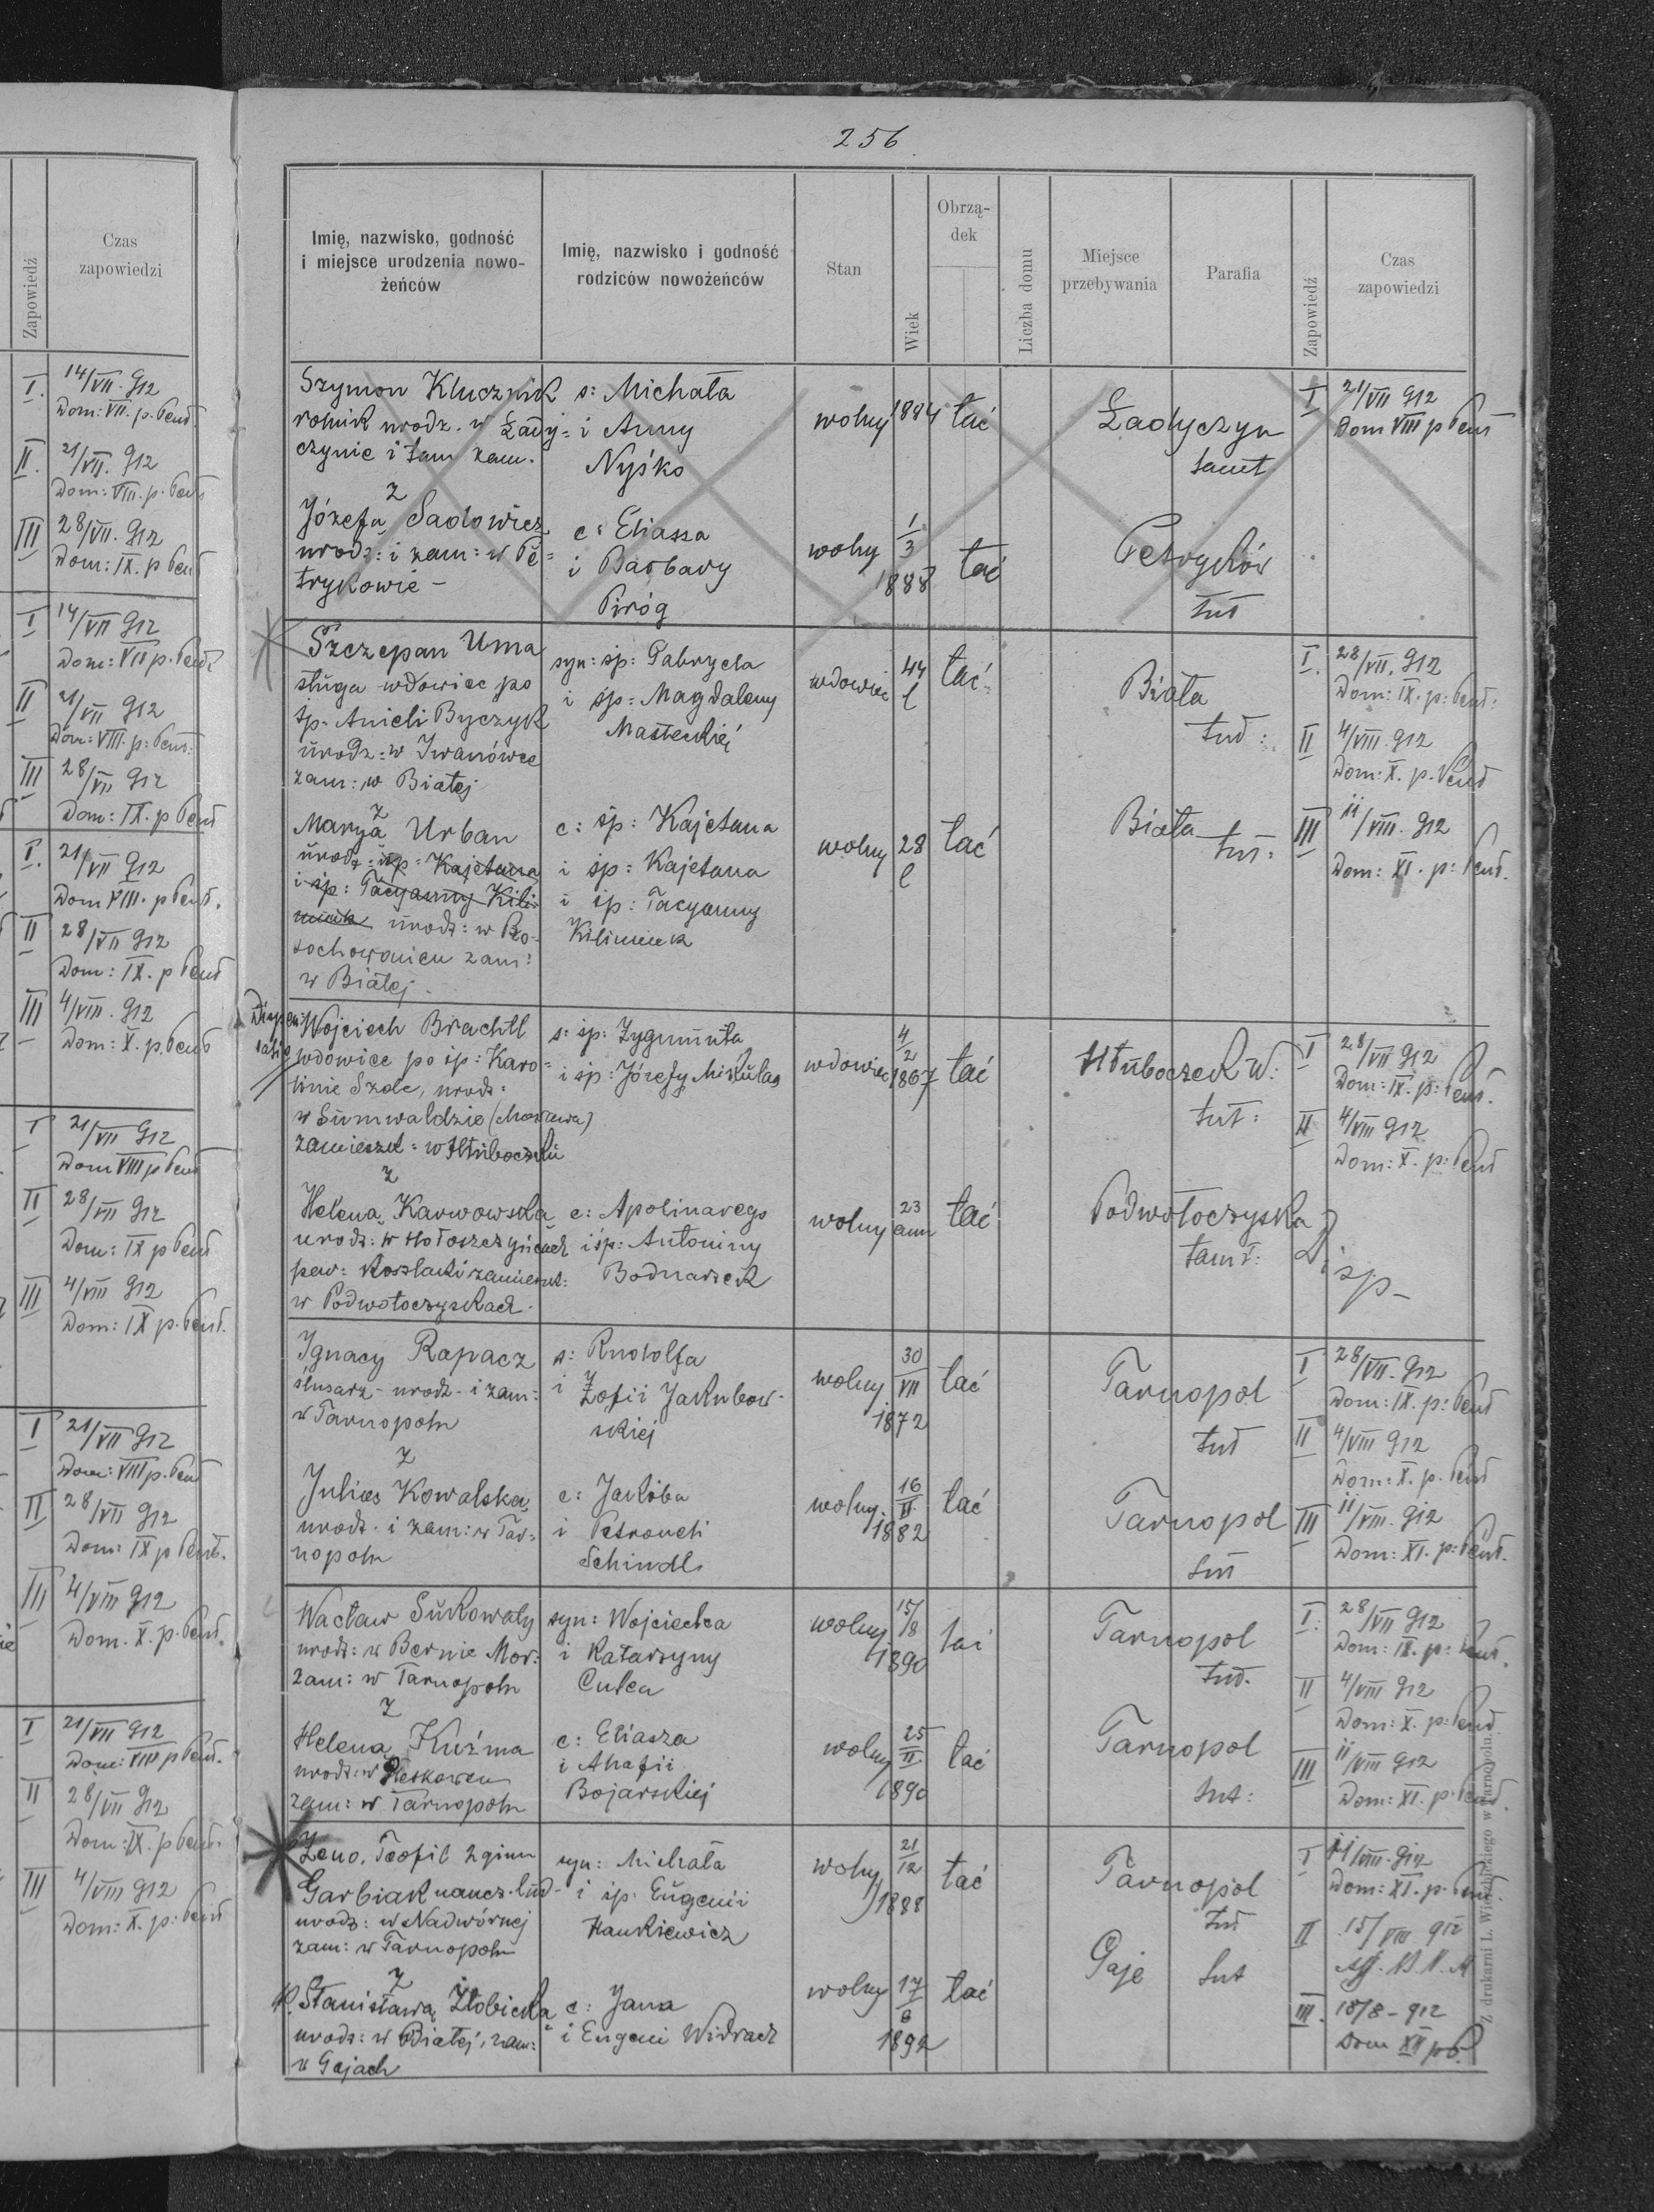 256
Zapowiedź
Czas
zapowiedzi
I. 14/VII. 912
Dom: VII. p. Pent.
II. 21/VII. 912
Dom: VIII. p. Pent
III 28/VII. 912
Dom: IX. p Pent
I 14/VII 912
Dom: VII p. Pent
II 21/VII 912
Dom: VIII. p: Pent:
III 28/VII 912
Dom: IX. p Pent
I. 21/VII 912
Dom VIII. p Pent.
II 28/VII 912
Dom: IX. p Pent
III 4/VIII. 912
Dom: X. p. Pent
I 21/VII 912
Dom VIII p Pent
II 28/VII 912
Dom: IX p Pent
III 4/VIII 912
Dom: IX p. Pent.
I 21/VII 912
Dom: VIII p. Pent
II 28/VII 912
Dom: IX p Pent.
III 4/VIII 912
Dom. X. p. Pent.
I 21/VII 912
Dom: VIII p Pent.
II 28/VII 912
Dom: IX. p Pent.
III 4/VIII 912
Dom: X. p: Pent
Imię, nazwisko, godność
i miejsce urodzenia nowo-
żeńców
Imię, nazwisko i godność
rodziców nowożeńców
Stan
Wiek
Obrzą-
dek
Liczba domu
Miejsce
przebywania
Parafia
Zapowiedź
Czas
zapowiedzi
Szymon Klucznik
rolnik urodz. w Łady=
czynie i tam zam.
z
s: Michała
i Anny
Nyśko
wolny 1884 łać
Ładyczyn
tamt
I 21/VII 912
Dom VIII p Pent
Józefa Sadowicz
urodz: i zam: w Pe=
trykowie -
c: Eliasza
i Barbary
Piróg
wolny 1/3 1888 łać
Petryków
tut
Szczepan Uma
sługa wdowiec po
śp. Anieli Byczyk
urodz: w Iwanówce
zam: w Białej
z
syn: śp: Gabryela
i śp: Magdaleny
Małeckiej
wdowiec 44 l łać
Biała
tut:
I. 28/VII. 912
Dom: IX. p: Pent:
II 4/VIII. 912
Dom: X. p. Pent
Marya Urban
urodz: śp: Kajetana
i śp: Tacyanny Kili
mnik urodz: w Ro-
sochowańcu zam:
w Białej.
c: śp: Kajetana
i śp: Kajetana
i śp: Tacyanny
Kilimnik
wolny 28 l łać
Biała
tut:
III 11/VIII. 912
Dom: XI. p: Pent.
Dispen
satio
Wojciech Brachtl
wdowiec po śp: Karo=
linie Szolc, urodz:
w Sumwaldzie (Morawa)
zamieszk: w Hłuboczku
z
s: śp: Zygmunta
i śp: Józefy Mikulas
wdowiec 4/2 1867 łać
Hłuboczek W.
tut:
I 28/VII 912
Dom: IX. p: Pent.
II 4/VIII 912
Dom: X. p: Pent
Helena Karwowska
urodz: w Hołoszczyńcach
pow: Koszlaki zamieszk:
w Podwołoczyskach.
c: Apolinarego
i śp: Antoniny
Bodnarzek
wolny 23 ann łać
Podwołoczyska
tamt:
Disp-
Ignacy Rapacz
ślusarz - urodz. i zam:
w Tarnopolu
z
s: Rudolfa
i Zofii Jakubow-
skiej
wolny 30/VII 1872 łać
Tarnopol
tut
I 28/VII. 912
Dom: IX. p: Pent
II 4/VIII 912
Dom: X. p. Pent
Julia Kowalska
urodz. i zam: w Tar=
nopolu
c: Jakóba
i Petroneli
Schindl.
wolny 16/II 1882 łać
Tarnopol
tut
III 11/VIII. 912
Dom: XI. p: Pent.
Wacław Sukowaty
urodz: w Bernie Mor:
zam: w Tarnopolu
z
syn: Wojciecha
i Katarzyny
Culca
wolny 15/8 1890 łać
Tarnopol
tut.
I. 28/VII 912
Dom: IX. p: Pent.
II 4/VIII 912
Dom: X. p: Pent.
Helena Kuźma
urodz: w Pleskowcu
zam: w Tarnopolu
c: Eliasza
i Ahafii
Bojarskiej
wolny 25/II 1890 łać
Tarnopol
tut:
III 11/VIII 912
Dom: XI. p. Pent.
Zeno. Teofil 2 gim
Garbiak naucz. lud-
urodz: w Nadwórnej
zam: w Tarnopolu
z
syn: Michała
i śp. Eugenii
Hankiewicz
wolny 21/12 1888 łać
Tarnopol
tut
I 11/VIII. 912
Dom: XI. p. Pent.
II 15/VIII 912
Ass. B. V. M
Stanisława Złobicka
urodz: w Białej, zam:
w Gajach
c: Jana
i Eugeni Widrach
wolny 17/8 1892 łać
Gaje tut
III. 18/8 - 912
Dom XII p P.
Z drukarni L. Wierzbickiego w Tarnopolu.